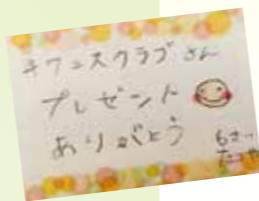 キワニスクラブさん
プレゼント
ありがとう
6さい